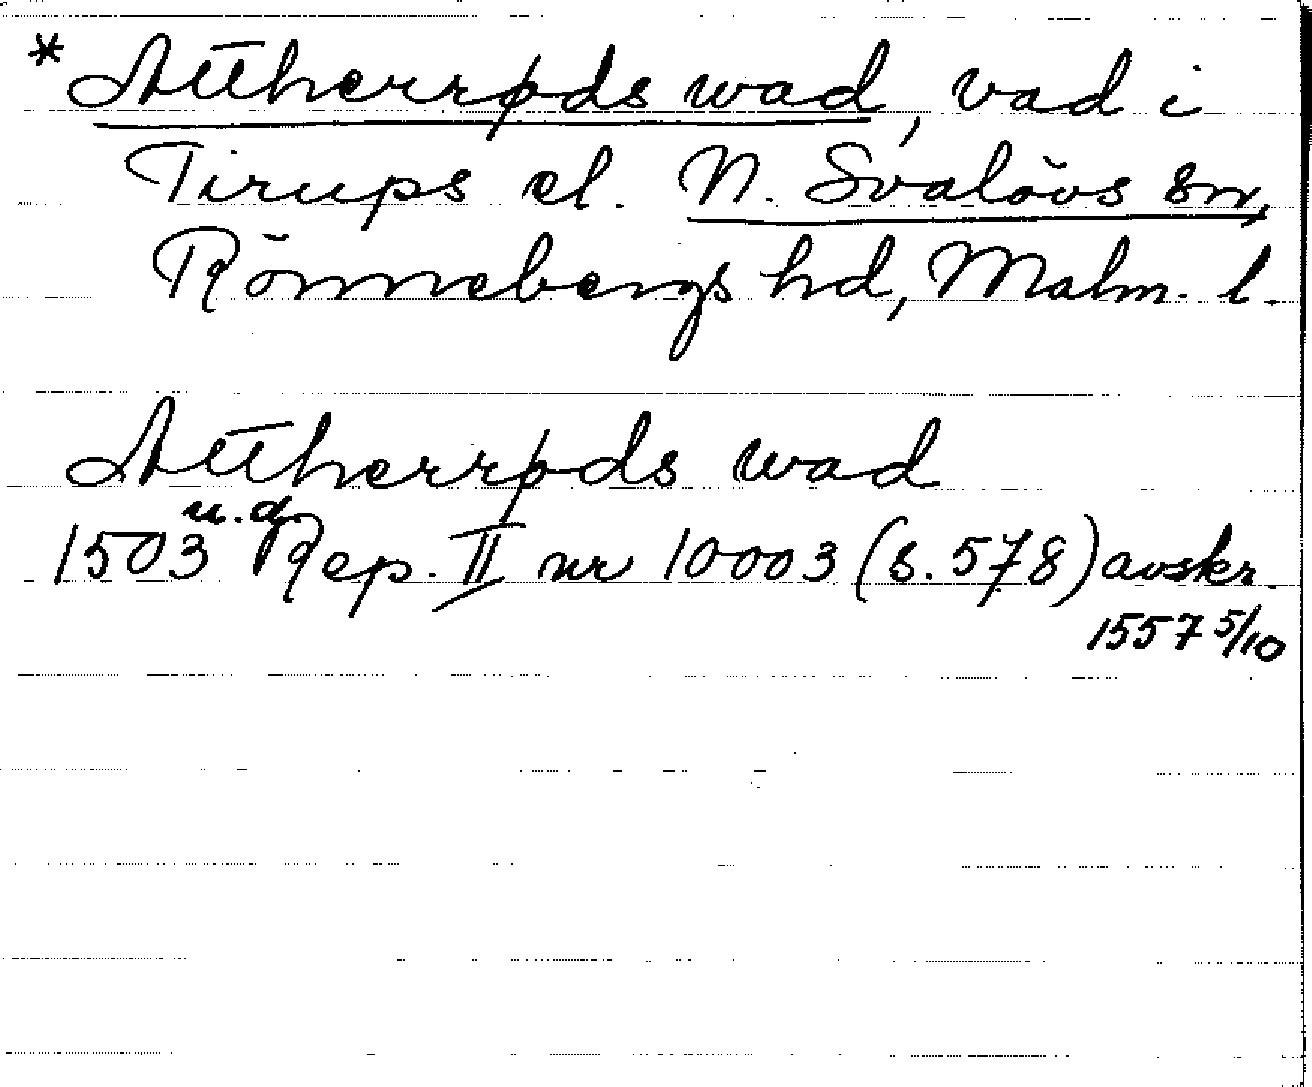 *Attherrøds wad, vad i
Tirups el. N. Svalövs sn,
Rönnebergs hd, Malm. l.
Attherrøds wad
1503 u.d. Rep. II nr 10003 (s. 578) avskr.
1557 5/10